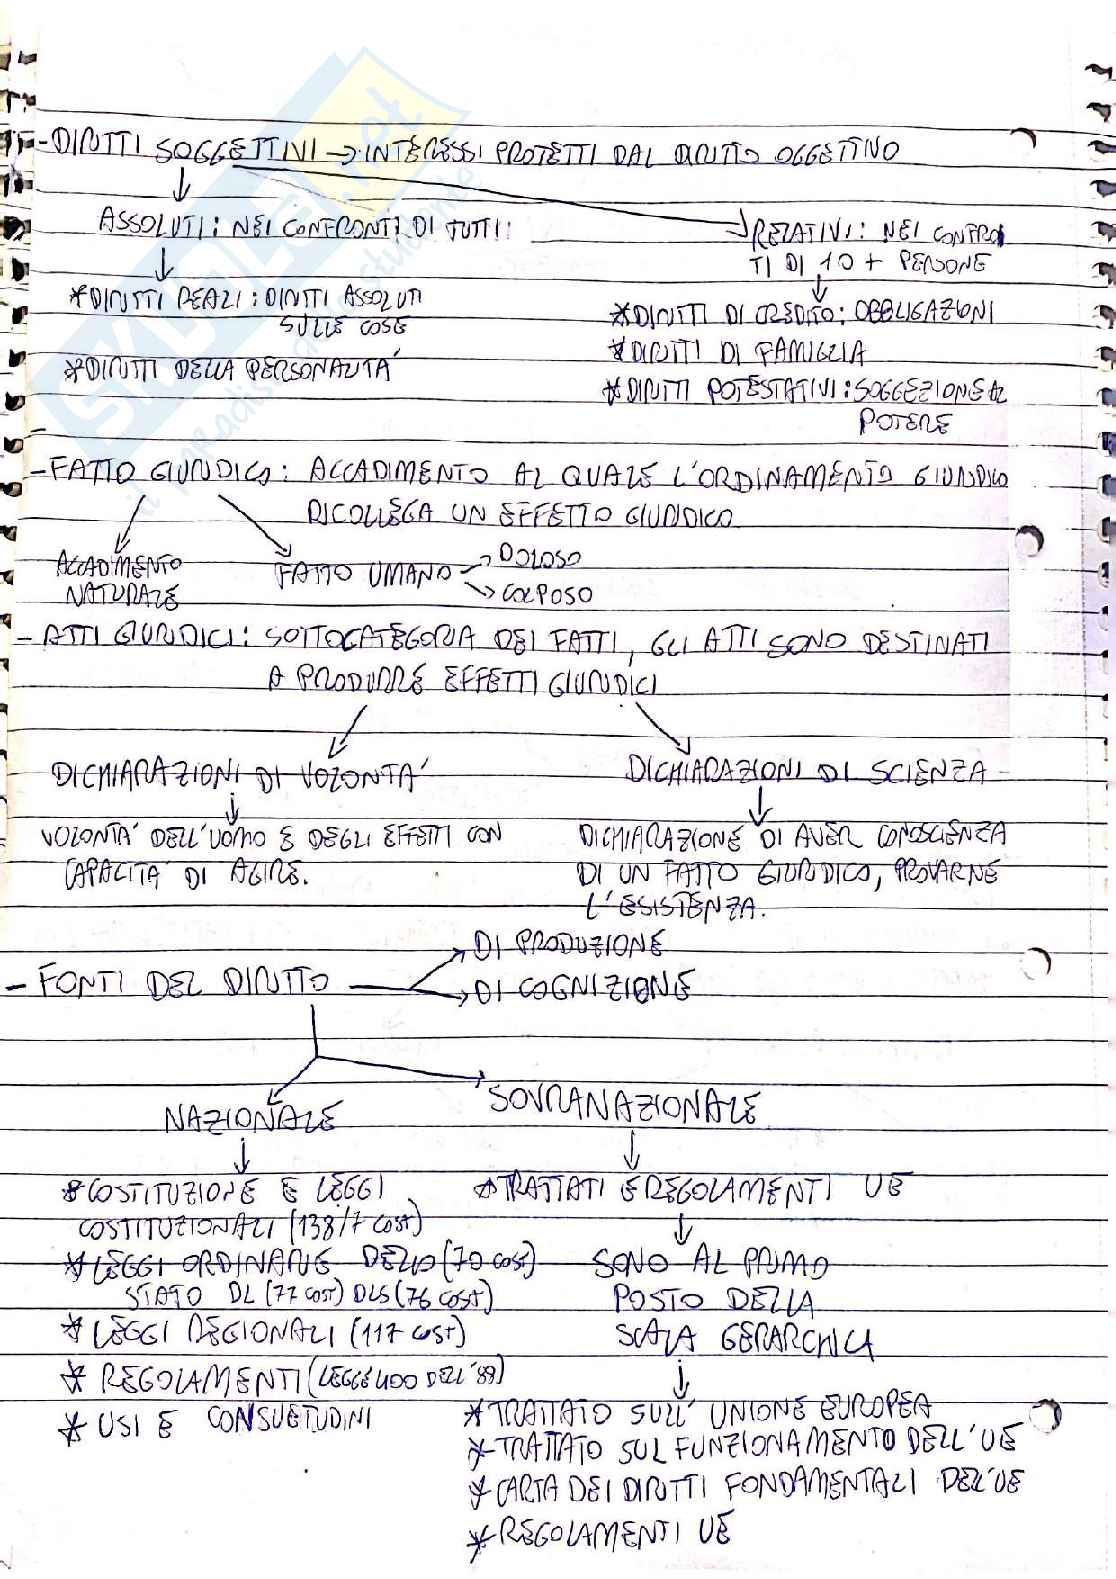 - DIRITTI SOGGETTIVI → INTERESSI PROTETTI DAL DIRITTO OGGETTIVO
ASSOLUTI: NEI CONFRONTI DI TUTTI
RELATIVI: NEI CONFRON
TI DI 1 O + PERSONE
* DIRITTI REALI: DIRITTI ASSOLUTI
SULLE COSE
* DIRITTI DELLA PERSONALITÁ
* DIRITTI DI CREDITO: OBBLIGAZIONI
* DIRITTI DI FAMIGLIA
* DIRITTI POTESTATIVI: SOGGEZIONE AL
POTERE
- FATTO GIURIDICO: ACCADIMENTO AL QUALE L'ORDINAMENTO GIURIDICO
RICOLLEGA UN EFFETTO GIURIDICO
ACCADIMENTO
NATURALE
FATTO UMANO
→ DOLOSO
→ COLPOSO
- ATTI GIURIDICI: SOTTOCATEGORIA DEI FATTI, GLI ATTI SONO DESTINATI
A PRODURRE EFFETTI GIURIDICI
DICHIARAZIONI DI VOLONTÁ
DICHIARAZIONI DI SCIENZA
VOLONTÁ DELL'UOMO E DEGLI EFFETTI CON
CAPACITÁ DI AGIRE.
DICHIARAZIONE DI AVER CONOSCIENZA
DI UN FATTO GIURIDICO, PROVARNE
L'ESISTENZA.
- FONTI DEL DIRITTO
→ DI PRODUZIONE
→ DI COGNIZIONE
NAZIONALE
SOVRANAZIONALE
* COSTITUZIONE E LEGGI
COSTITUZIONALI (138/7 COST)
* LEGGI ORDINARIE DELLO (70 COST)
STATO DL (77 COST) DLS (76 COST)
* LEGGI REGIONALI (117 COST)
* REGOLAMENTI (LEGGE 400 DELL'88)
* USI E CONSUETUDINI
* TRATTATI E REGOLAMENTI UE
SONO AL PRIMO
POSTO DELLA
SCALA GERARCHICA
* TRATTATO SULL'UNIONE EUROPEA
* TRATTATO SUL FUNZIONAMENTO DELL'UE
* CARTA DEI DIRITTI FONDAMENTALI DELL'UE
* REGOLAMENTI UE
SKUOLA.net
il paradiso dello studente